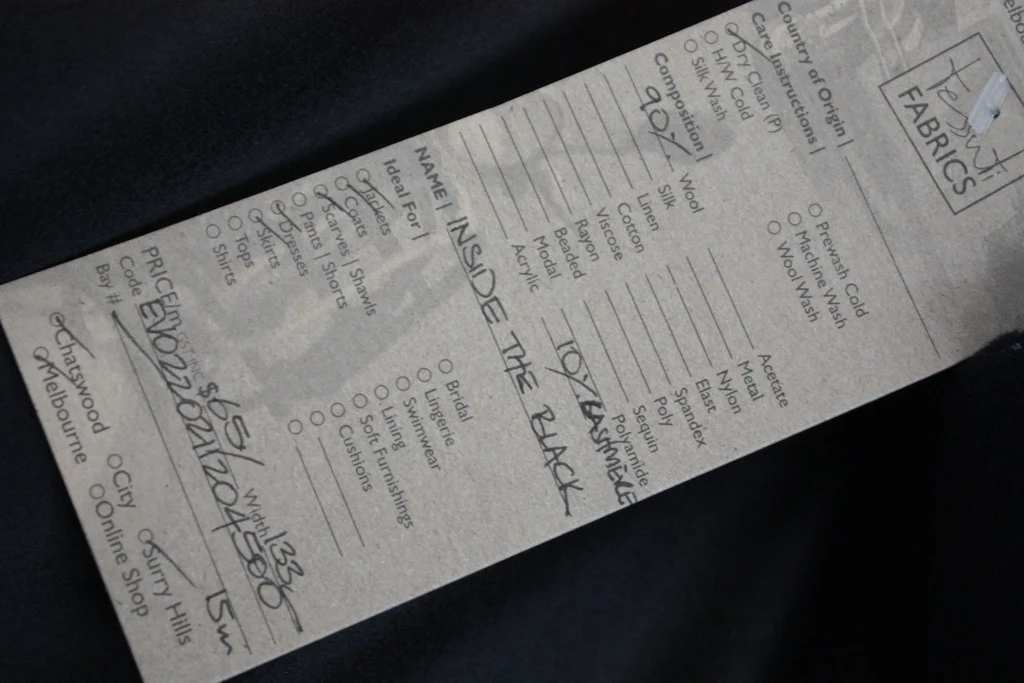 Tessuti
FABRICS
Country of Origin |
Care Instructions |
Dry Clean (P)
H/W Cold
Silk Wash
Prewash Cold
Machine Wash
Wool Wash
Composition |
90% Wool
Silk
Linen
Cotton
Viscose
Rayon
Beaded
Modal
Acrylic
Acetate
Metal
Nylon
Elast
Spandex
Poly
Sequin
Polyamide
10% CASHMERE
NAME | INSIDE THE BLACK
Ideal For |
Jackets
Coats
Scarves | Shawls
Pants | Shorts
Dresses
Skirts
Tops
Shirts
Bridal
Lingerie
Swimwear
Lining
Soft Furnishings
Cushions
PRICE/m GST INC $65/ Width 133
Code
Bay # 15m
Chatswood
Melbourne
City
Online Shop
Surry Hills